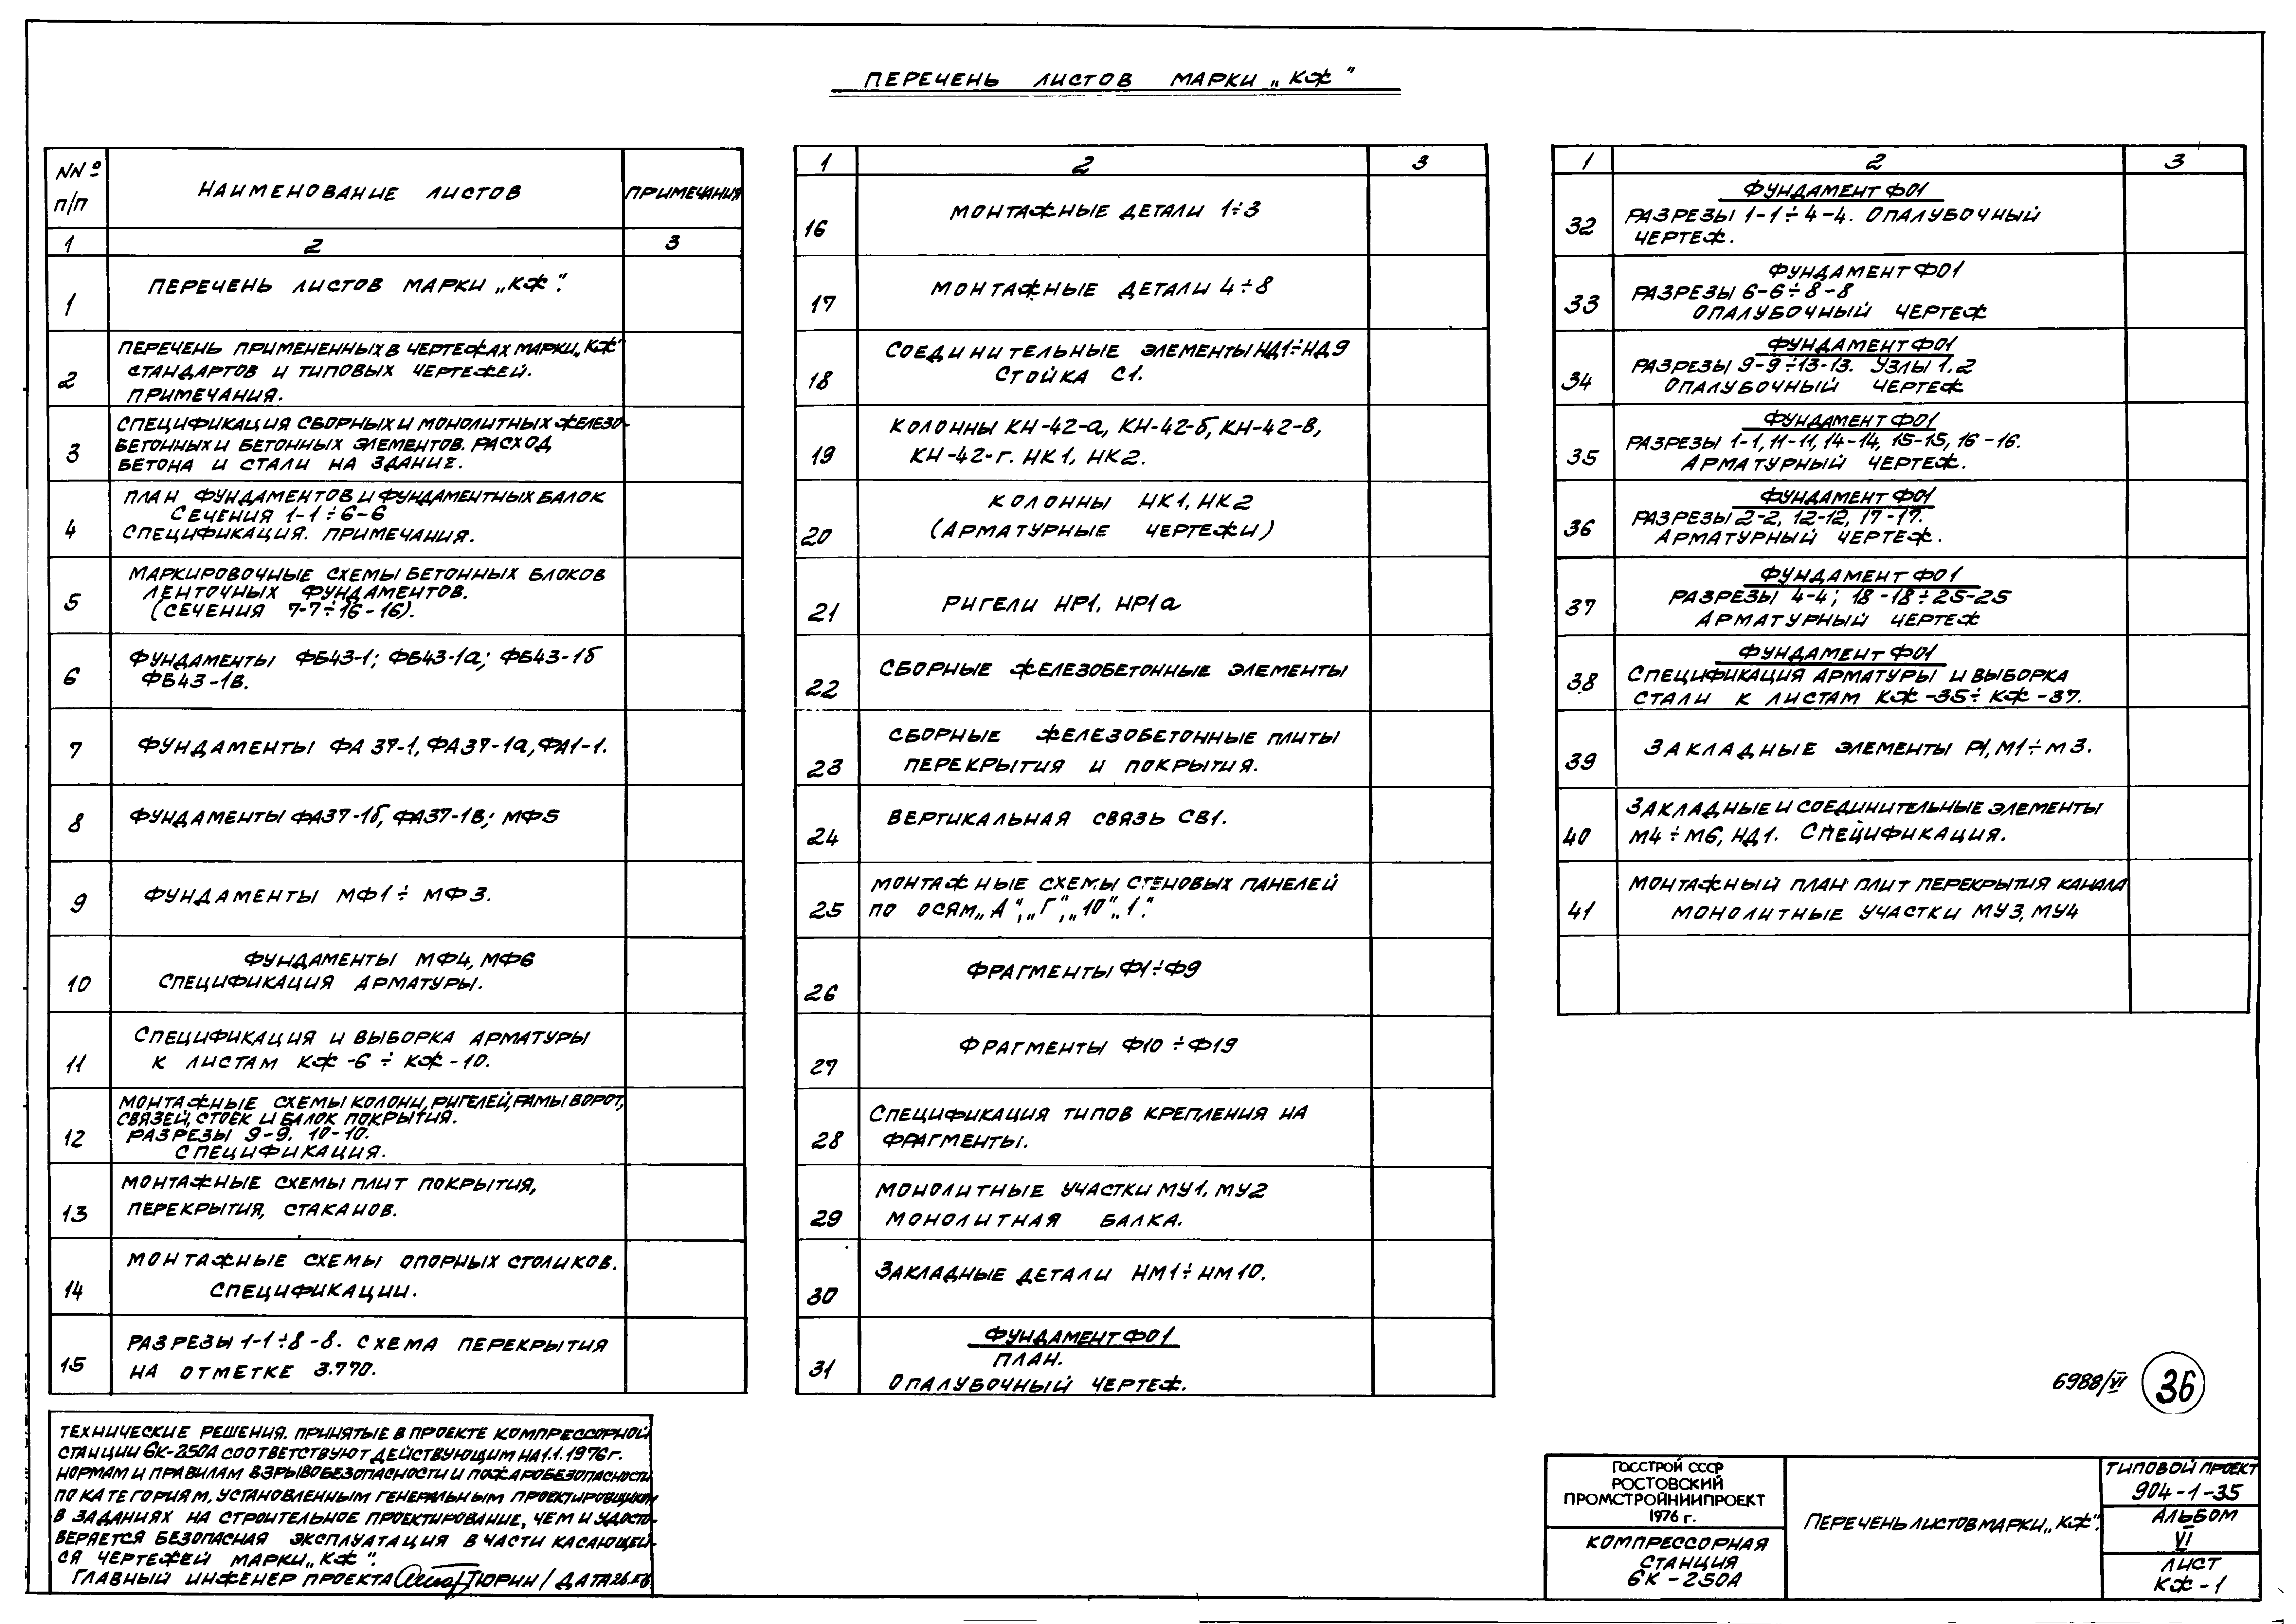 ПЕРЕЧЕНЬ ЛИСТОВ МАРКИ „КЖ"
NNº п/п
НАИМЕНОВАНИЕ ЛИСТОВ
ПРИМЕЧАНИЯ
1 2 3
1
ПЕРЕЧЕНЬ ЛИСТОВ МАРКИ „КЖ".
2
ПЕРЕЧЕНЬ ПРИМЕНЕННЫХ В ЧЕРТЕЖАХ МАРКИ „КЖ"
СТАНДАРТОВ И ТИПОВЫХ ЧЕРТЕЖЕЙ.
ПРИМЕЧАНИЯ.
3
СПЕЦИФИКАЦИЯ СБОРНЫХ И МОНОЛИТНЫХ ЖЕЛЕЗО-
БЕТОННЫХ И БЕТОННЫХ ЭЛЕМЕНТОВ. РАСХОД
БЕТОНА И СТАЛИ НА ЗДАНИЕ.
4
ПЛАН ФУНДАМЕНТОВ И ФУНДАМЕНТНЫХ БАЛОК
СЕЧЕНИЯ 1-1÷6-6
СПЕЦИФИКАЦИЯ. ПРИМЕЧАНИЯ.
5
МАРКИРОВОЧНЫЕ СХЕМЫ БЕТОННЫХ БЛОКОВ
ЛЕНТОЧНЫХ ФУНДАМЕНТОВ.
(СЕЧЕНИЯ 7-7÷16-16).
6
ФУНДАМЕНТЫ ФБ43-1; ФБ43-1а; ФБ43-1б
ФБ43-1в.
7
ФУНДАМЕНТЫ ФА 37-1, ФА37-1а, ФА1-1.
8
ФУНДАМЕНТЫ ФА37-1б, ФА37-1в; МФ5
9
ФУНДАМЕНТЫ МФ1÷МФ3.
10
ФУНДАМЕНТЫ МФ4, МФ6
СПЕЦИФИКАЦИЯ АРМАТУРЫ.
11
СПЕЦИФИКАЦИЯ И ВЫБОРКА АРМАТУРЫ
К ЛИСТАМ КЖ-6 ÷ КЖ-10.
12
МОНТАЖНЫЕ СХЕМЫ КОЛОНН, РИГЕЛЕЙ, РАМЫ ВОРОТ,
СВЯЗЕЙ, СТОЕК И БАЛОК ПОКРЫТИЯ.
РАЗРЕЗЫ 9-9. 10-10.
СПЕЦИФИКАЦИЯ.
13
МОНТАЖНЫЕ СХЕМЫ ПЛИТ ПОКРЫТИЯ,
ПЕРЕКРЫТИЯ, СТАКАНОВ.
14
МОНТАЖНЫЕ СХЕМЫ ОПОРНЫХ СТОЛИКОВ.
СПЕЦИФИКАЦИИ.
15
РАЗРЕЗЫ 1-1÷8-8. СХЕМА ПЕРЕКРЫТИЯ
НА ОТМЕТКЕ 3.770.
1 2 3
16
МОНТАЖНЫЕ ДЕТАЛИ 1÷3
17
МОНТАЖНЫЕ ДЕТАЛИ 4÷8
18
СОЕДИНИТЕЛЬНЫЕ ЭЛЕМЕНТЫ НД1÷НД9
СТОЙКА С1.
19
КОЛОННЫ КН-42-а, КН-42-б, КН-42-в,
КН-42-г. НК1, НК2.
20
КОЛОННЫ НК1, НК2
(АРМАТУРНЫЕ ЧЕРТЕЖИ)
21
РИГЕЛИ НР1. НР1а
22
СБОРНЫЕ ЖЕЛЕЗОБЕТОННЫЕ ЭЛЕМЕНТЫ
23
СБОРНЫЕ ЖЕЛЕЗОБЕТОННЫЕ ПЛИТЫ
ПЕРЕКРЫТИЯ И ПОКРЫТИЯ.
24
ВЕРТИКАЛЬНАЯ СВЯЗЬ СВ1.
25
МОНТАЖНЫЕ СХЕМЫ СТЕНОВЫХ ПАНЕЛЕЙ
ПО ОСЯМ „А", „Г", „10", „1".
26
ФРАГМЕНТЫ Ф1÷Ф9
27
ФРАГМЕНТЫ Ф10÷Ф19
28
СПЕЦИФИКАЦИЯ ТИПОВ КРЕПЛЕНИЯ НА
ФРАГМЕНТЫ.
29
МОНОЛИТНЫЕ УЧАСТКИ МУ1, МУ2
МОНОЛИТНАЯ БАЛКА.
30
ЗАКЛАДНЫЕ ДЕТАЛИ НМ1÷НМ10.
31
ФУНДАМЕНТ Ф01
ПЛАН.
ОПАЛУБОЧНЫЙ ЧЕРТЕЖ.
1 2 3
32
ФУНДАМЕНТ Ф01
РАЗРЕЗЫ 1-1÷4-4. ОПАЛУБОЧНЫЙ
ЧЕРТЕЖ.
33
ФУНДАМЕНТ Ф01
РАЗРЕЗЫ 6-6÷8-8
ОПАЛУБОЧНЫЙ ЧЕРТЕЖ
34
ФУНДАМЕНТ Ф01
РАЗРЕЗЫ 9-9÷13-13. УЗЛЫ 1.2
ОПАЛУБОЧНЫЙ ЧЕРТЕЖ
35
ФУНДАМЕНТ Ф01
РАЗРЕЗЫ 1-1, 11-11, 14-14, 15-15, 16-16.
АРМАТУРНЫЙ ЧЕРТЕЖ.
36
ФУНДАМЕНТ Ф01
РАЗРЕЗЫ 2-2, 12-12, 17-17.
АРМАТУРНЫЙ ЧЕРТЕЖ.
37
ФУНДАМЕНТ Ф01
РАЗРЕЗЫ 4-4; 18-18÷25-25
АРМАТУРНЫЙ ЧЕРТЕЖ
38
ФУНДАМЕНТ Ф01
СПЕЦИФИКАЦИЯ АРМАТУРЫ И ВЫБОРКА
СТАЛИ К ЛИСТАМ КЖ-35÷КЖ-37.
39
ЗАКЛАДНЫЕ ЭЛЕМЕНТЫ Р1, М1÷М3.
40
ЗАКЛАДНЫЕ И СОЕДИНИТЕЛЬНЫЕ ЭЛЕМЕНТЫ
М4÷М6, НД1. СПЕЦИФИКАЦИЯ.
41
МОНТАЖНЫЙ ПЛАН ПЛИТ ПЕРЕКРЫТИЯ КАНАЛА
МОНОЛИТНЫЕ УЧАСТКИ МУ3, МУ4
6988/VI 36
ТЕХНИЧЕСКИЕ РЕШЕНИЯ. ПРИНЯТЫЕ В ПРОЕКТЕ КОМПРЕССОРНОЙ
СТАНЦИИ 6К-250А СООТВЕТСТВУЮТ ДЕЙСТВУЮЩИМ НА 1.1.1976г.
НОРМАМ И ПРАВИЛАМ ВЗРЫВОБЕЗОПАСНОСТИ И ПОЖАРОБЕЗОПАСНОСТИ
ПО КАТЕГОРИЯМ, УСТАНОВЛЕННЫМ ГЕНЕРАЛЬНЫМ ПРОЕКТИРОВЩИКОМ
В ЗАДАНИЯХ НА СТРОИТЕЛЬНОЕ ПРОЕКТИРОВАНИЕ, ЧЕМ И УДОСТО-
ВЕРЯЕТСЯ БЕЗОПАСНАЯ ЭКСПЛУАТАЦИЯ В ЧАСТИ КАСАЮЩЕЙ-
СЯ ЧЕРТЕЖЕЙ МАРКИ „КЖ".
ГЛАВНЫЙ ИНЖЕНЕР ПРОЕКТА ТЮРИН/ ДАТА
ГОССТРОЙ СССР
РОСТОВСКИЙ
ПРОМСТРОЙНИИПРОЕКТ
1976 г.
КОМПРЕССОРНАЯ
СТАНЦИЯ
6К-250А
ПЕРЕЧЕНЬ ЛИСТОВ МАРКИ „КЖ".
ТИПОВОЙ ПРОЕКТ
904-1-35
АЛЬБОМ
VI
ЛИСТ
КЖ-1